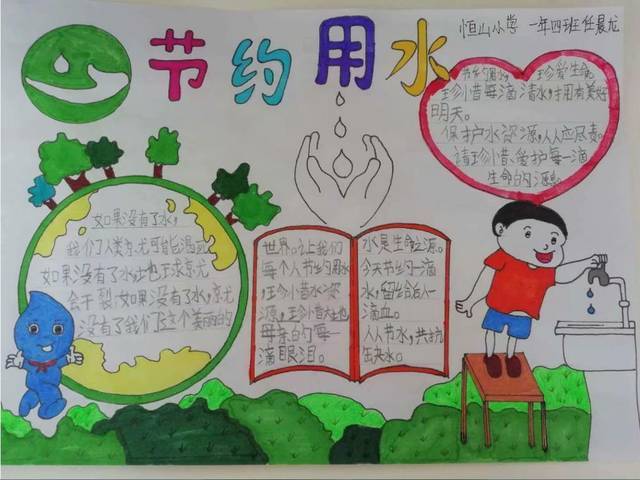 节约用水
恒山小学 一年四班任晨龙
节约用水,珍爱生命。
珍惜每滴清水,才用有美好
明天。
保护水资源,人人应尽责。
请珍惜、爱护每一滴
生命的源
如果没有了水,
我们人类就可能渴死
如果没有了水地球就
会干裂;如果没有了水,就
没有了我们这个美丽的
世界。让我们
每个人节约用水
,珍小惜水资
源,珍小惜大地
母亲的每一
滴眼泪。
水是生命之源。
今天节约一滴
水,留给后人一
滴血。
人人节水,共抗
生共水。